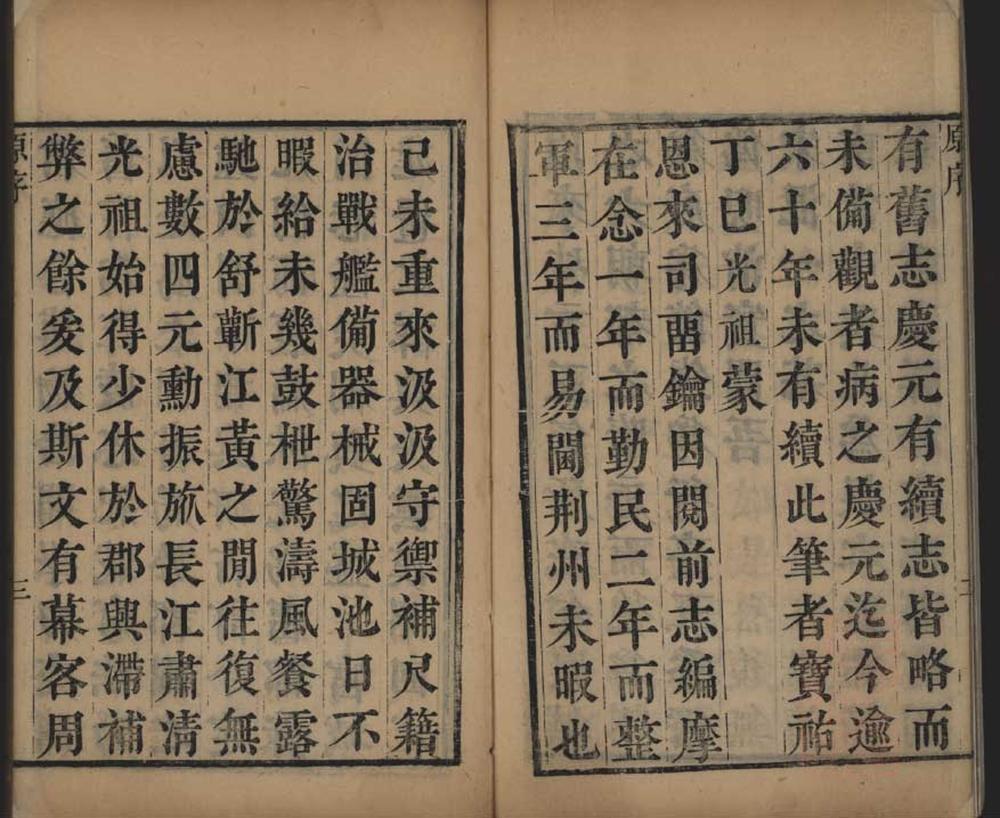 有舊志慶元有續志皆略而
未備觀者病之慶元迄今逾
六十年未有續此筆者寶祐
丁巳光祖蒙
恩來司畱鑰因閱前志編摩
在念一年而勤民二年而整
軍三年而易閫荆州未暇也
己未重來汲汲守禦補尺籍
治戰艦備器械固城池日不
暇給未幾鼓枻驚濤風餐露
馳於舒蘄江黃之閒往復無
慮數四元勳振旅長江肅清
光祖始得少休於郡興滯補
弊之餘爰及斯文有幕客周
原序
二
原序
三